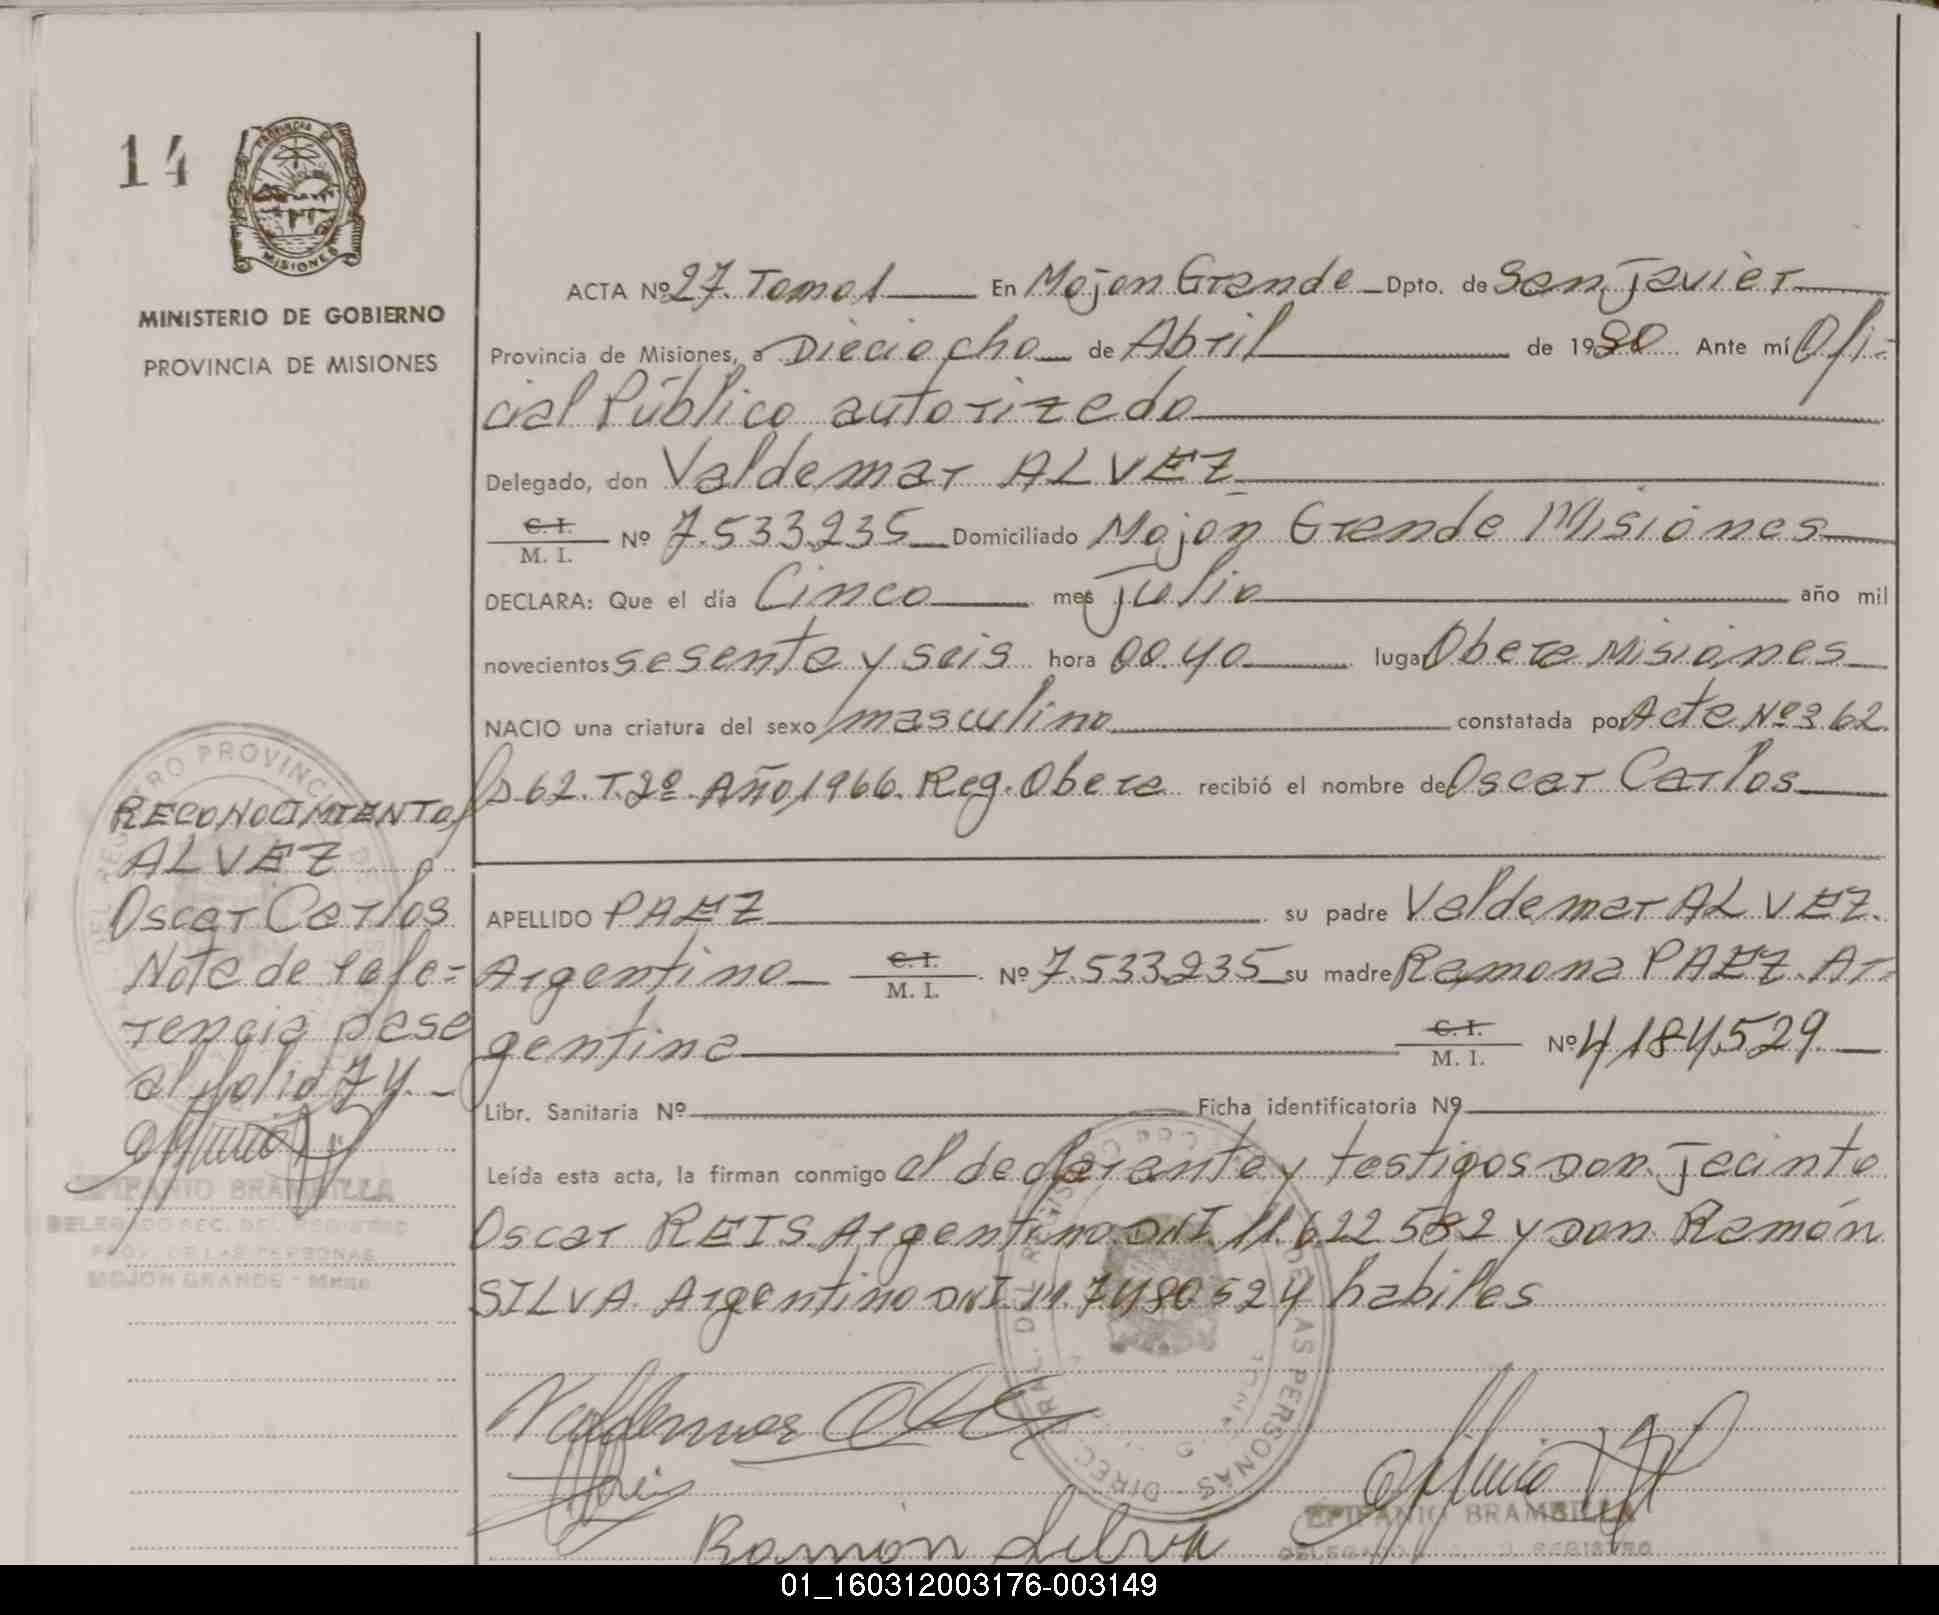 14
PROVINCIA DE
MISIONES
MINISTERIO DE GOBIERNO
PROVINCIA DE MISIONES
ACTA Nº 27. Tomo 1 En Mojon Grande Dpto. de San Javier
Provincia de Misiones, a Dieciocho de Abril de 1980 Ante mí Ofi-
cial Público autorizado
Delegado, don Valdemar ALVEZ
C.I.
M. I. Nº 7.533.235 Domiciliado Mojon Grande Misiones
DECLARA: Que el día Cinco mes Julio año mil
novecientos sesenta y seis hora 00.40 lugar Obera Misiones
NACIO una criatura del sexo masculino constatada por Acta Nº 362
Fs 62. T. 2º. Año 1966. Reg. Obera recibió el nombre de Oscar Carlos
APELLIDO PAEZ su padre Valdemar ALVEZ.
Argentino C.I.
M. I. Nº 7.533.235 su madre Ramona PAEZ. Ar-
gentina C.I.
M. I. Nº 4.184.529
Libr. Sanitaria Nº Ficha identificatoria Nº
Leída esta acta, la firman conmigo el declarante y testigos Don Jacinto
Oscar REIS. Argentino DNI. 11.622.582 y Don Ramón
SILVA. Argentino DNI. M. 7.480.524 habiles
RECONOCIMIENTO
ALVEZ
Oscar Carlos
Nota de refe=
rencia pase
al folio 74.-
EPIFANIO BRAMBILLA
DELEGADO SEC. DEL REGISTRO
PROV. DE LAS PERSONAS
MOJON GRANDE - Mnes
DIREC. GRAL. DEL REGISTRO DE LAS PERSONAS
Ramón Silva
EPIFANIO BRAMBILLA
DELEGADO REGISTRO
01_160312003176-003149